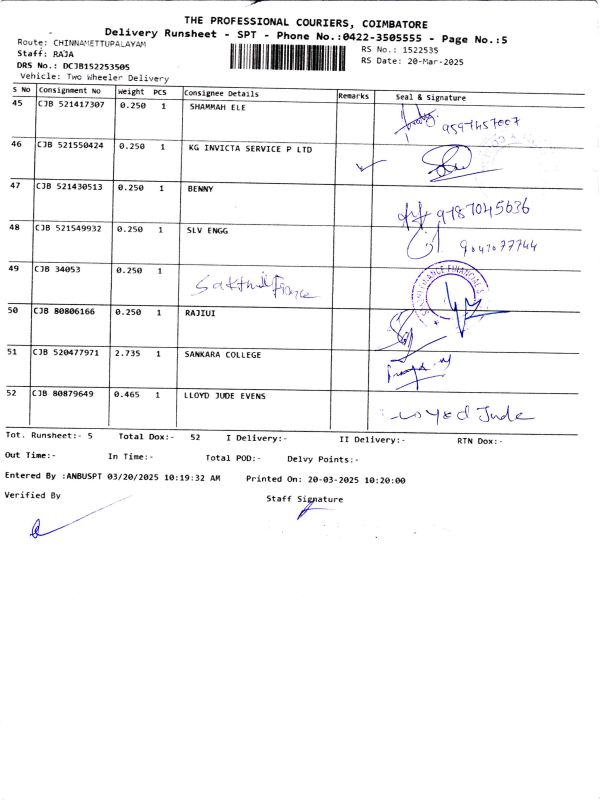 THE PROFESSIONAL COURIERS, COIMBATORE
Delivery Runsheet - SPT - Phone No.:0422-3505555 - Page No.:5
Route: CHINNAMETTUPALAYAM
RS No.: 1522535
Staff: RAJA
RS Date: 20-Mar-2025
DRS No.: DCJB152253505
Vehicle: Two Wheeler Delivery
S No Consignment No Weight PCS Consignee Details Remarks Seal & Signature
45 CJB 521417307 0.250 1 SHAMMAH ELE 9597457007
46 CJB 521550424 0.250 1 KG INVICTA SERVICE P LTD
47 CJB 521430513 0.250 1 BENNY 9787045636
48 CJB 521549932 0.250 1 SLV ENGG 9047077744
49 CJB 34053 0.250 1
50 CJB 80806166 0.250 1 RAJIUI
51 CJB 520477971 2.735 1 SANKARA COLLEGE
52 CJB 80879649 0.465 1 LLOYD JUDE EVENS Jude
Tot. Runsheet:- 5 Total Dox:- 52 I Delivery:- II Delivery:- RTN Dox:-
Out Time:- In Time:- Total POD:- Delvy Points:-
Entered By :ANBUSPT 03/20/2025 10:19:32 AM Printed On: 20-03-2025 10:20:00
Verified By Staff Signature